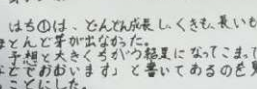 はち①は、どんどん成長し、くきも、長いも
とんど芽が出なかった。
予想と大きくちがう結果になってこまって
とでおおいます」と書いてあるのを見
ことにした。